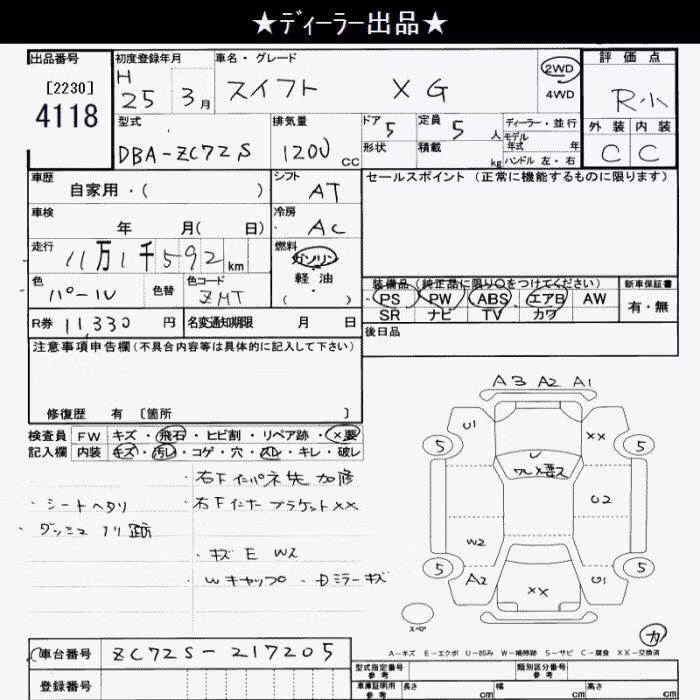 ★ディーラー出品★
出品番号 初度登録年月 車名・グレード 評価点
[2230] H 25 3月 スイフト XG 2WD 4WD R小
4118
型式 排気量 ドア 5 定員 5人 ディーラー・並行 外装 内装
DBA-ZC72S 1200 CC 形状 積載 kg モデル年式 年 ハンドル 左・右 C C
車歴 自家用・( ) シフト AT セールスポイント(正常に機能するものに限ります)
車検 年 月( 日) 冷房 AC
走行 11万1千592km 燃料 ガソリン 軽油 ( ・ )
色 パール 色替 色コード ZMT
装備品(純正品に限り○をつけてください) 新車保証書
PS PW ABS エアB AW 有・無
SR ナビ TV カワ
R券 11330円 名変通知期限 月 日 後日品
注意事項申告欄(不具合内容等は具体的に記入して下さい)
修復歴 有 〔箇所 〕
検査員 FW キズ・飛石・ヒビ割・リペア跡・×要
記入欄 内装 キズ・汚レ・コゲ・穴・スレ・キレ・破レ
右F インパネ先 加修
・シートヘタリ ・右F インナーブラケットXX
・ダッシュ ノリ跡
・キズ E W2
・Wキャップ ・Dミラーキズ
A3 A2 A1
U1 XX
5 5
U2
W2
5 A2 XX U1 5
スペア
カ
A-キズ E-エクボ U-凹み W-補修跡 S-サビ C-腐食 XX-交換済
車台番号 ZC72S-217205
登録番号
型式指定番号 参考 類別区分番号 参考
車庫証明用 参考 長さ cm 幅 cm 高さ cm